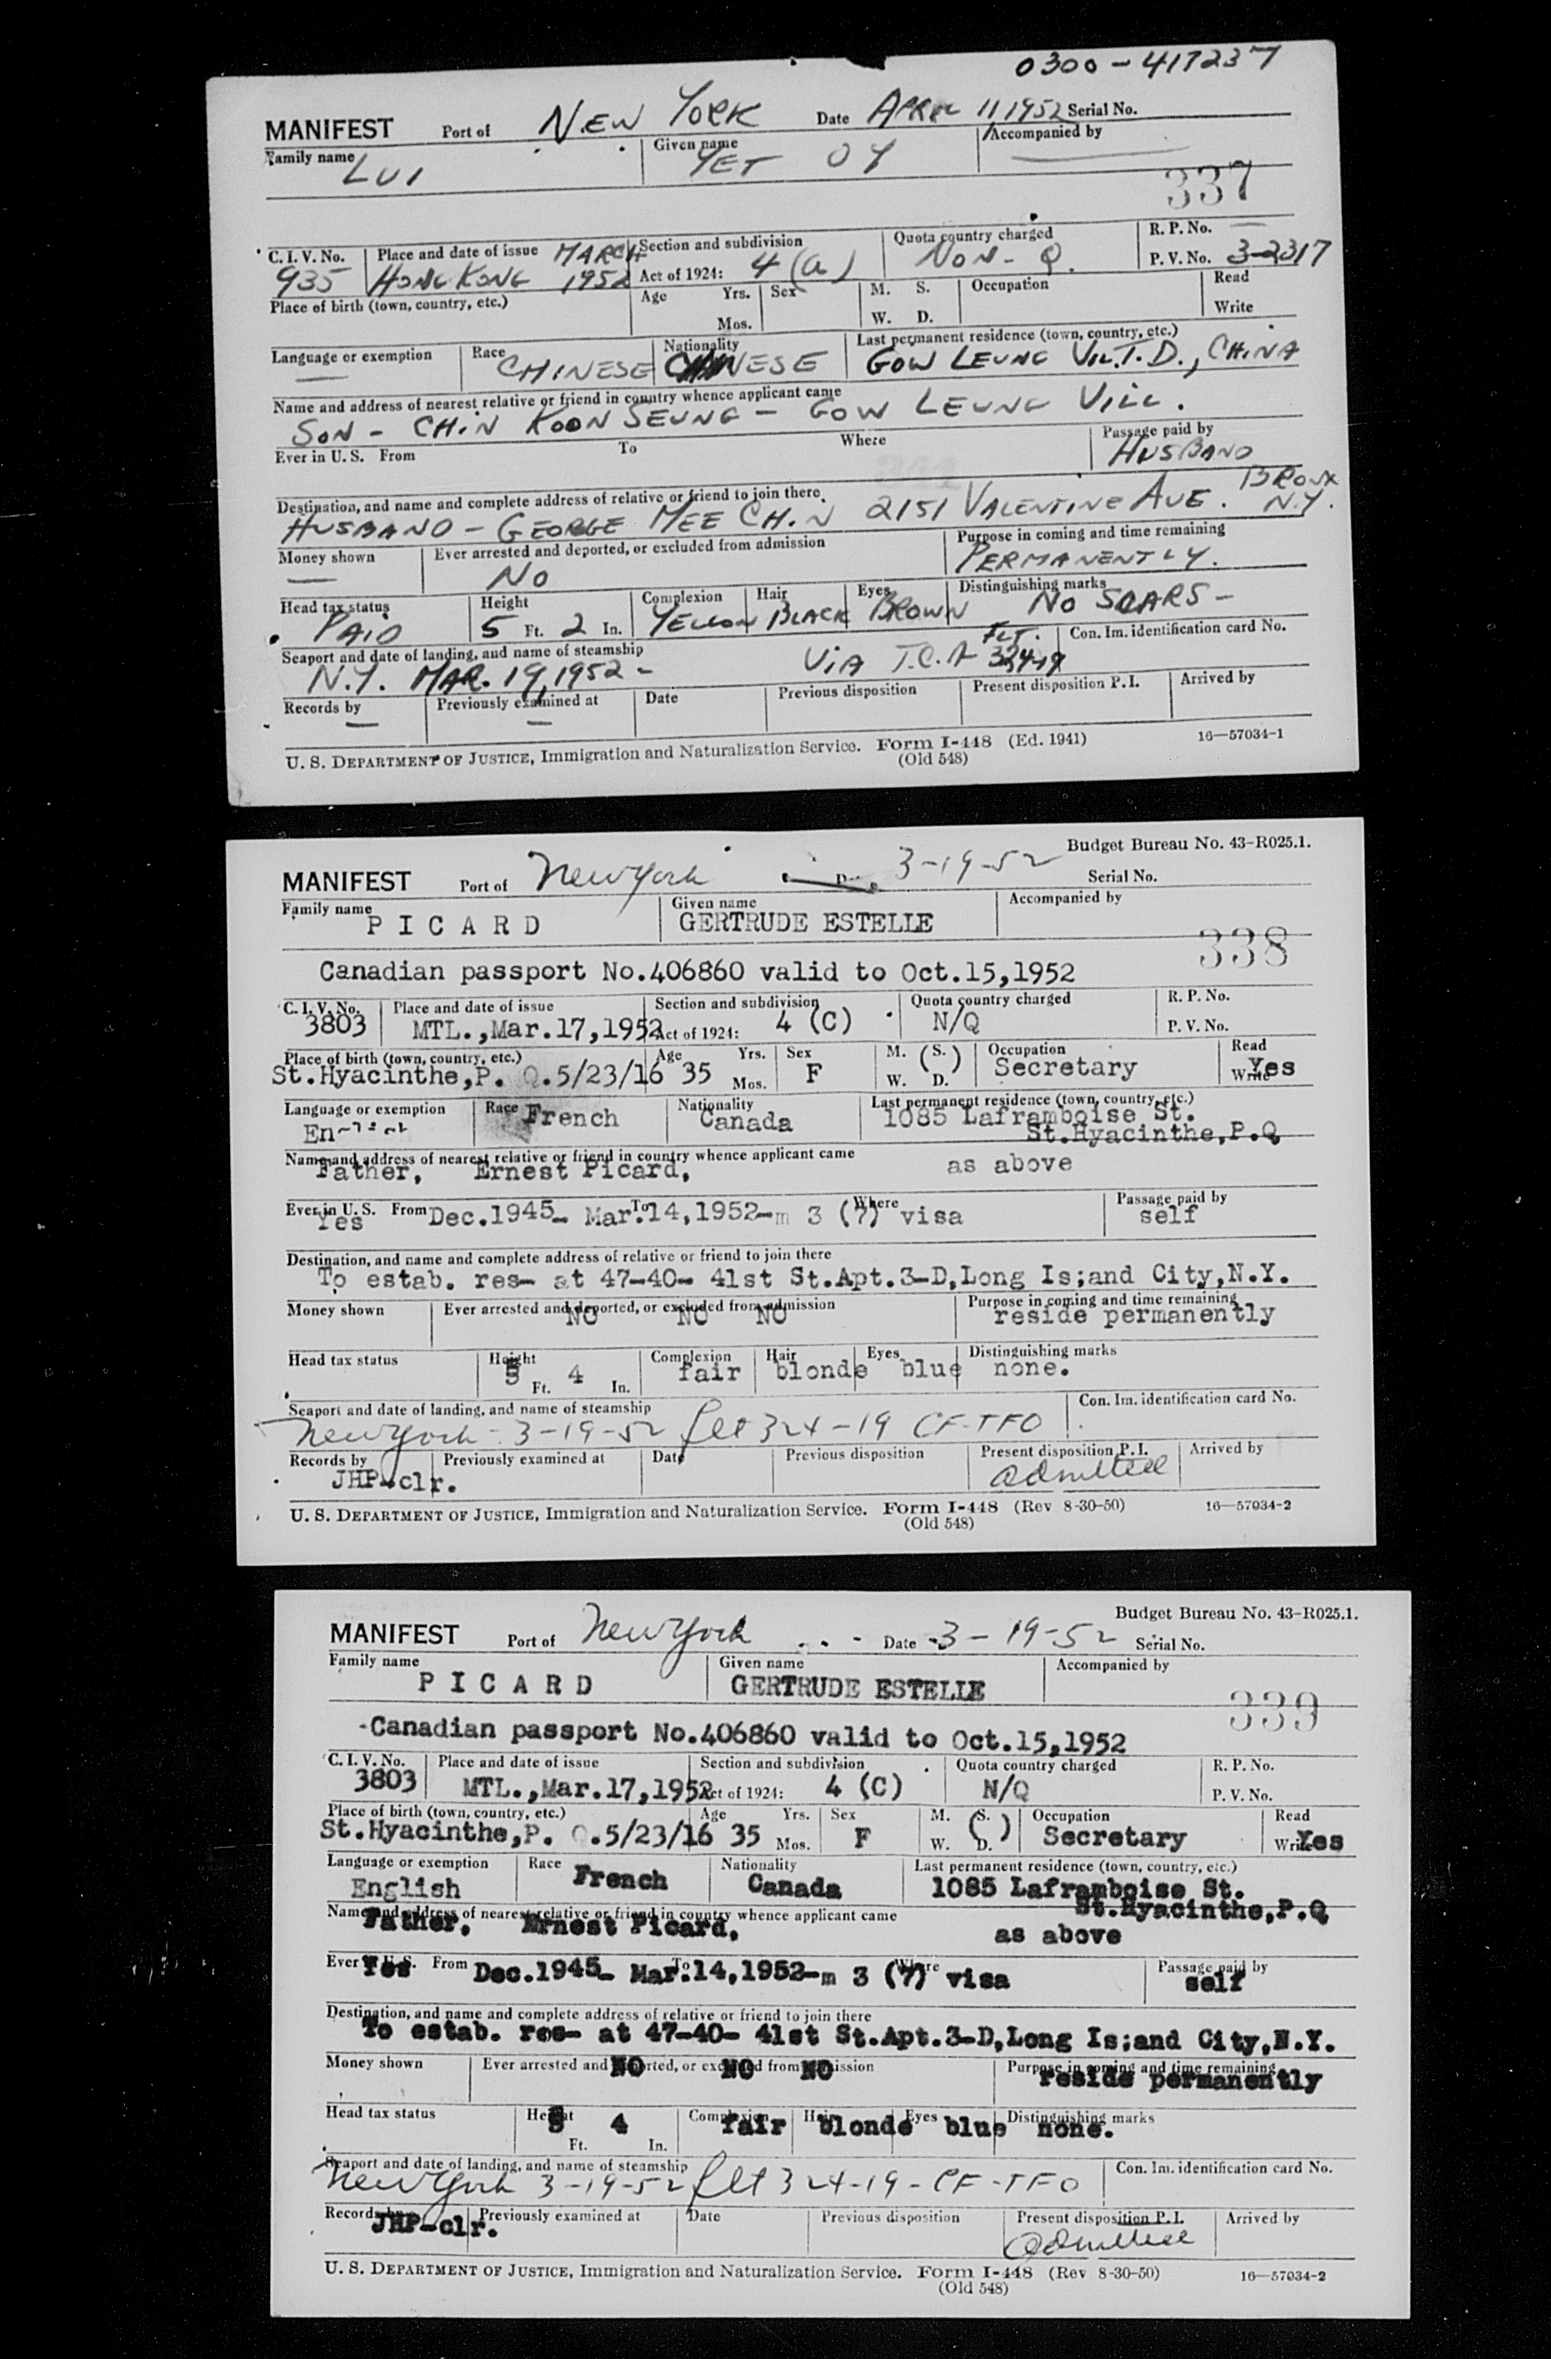 0300-417237
MANIFEST Port of NEW YORK Date APRIL 11, 1952 Serial No.
Family name LUI Given name YET OY Accompanied by —
337
C. I. V. No. 935 Place and date of issue HONG KONG MARCH 1952 Section and subdivision Act of 1924: 4 (a) Quota country charged NON-Q. R. P. No. — P. V. No. 3-2317
Place of birth (town, country, etc.) Age Yrs. Mos. Sex M. S. W. D. Occupation Read Write
Language or exemption — Race CHINESE Nationality CHINESE Last permanent residence (town, country, etc.) GOW LEUNG VIL. T. D., CHINA
Name and address of nearest relative or friend in country whence applicant came
SON - CHIN KOON SEUNG - GOW LEUNG VILL.
Ever in U. S. From To Where Passage paid by HUSBAND
Destination, and name and complete address of relative or friend to join there
HUSBAND - GEORGE MEE CHIN 2151 VALENTINE AVE. BRONX N.Y.
Money shown — Ever arrested and deported, or excluded from admission NO Purpose in coming and time remaining PERMANENTLY.
Head tax status PAID Height 5 Ft. 2 In. Complexion YELLOW Hair BLACK Eyes BROWN Distinguishing marks NO SCARS -
Seaport and date of landing, and name of steamship N.Y. MAR. 19, 1952 - VIA T.C.A FLT. 324-19 Con. Im. identification card No.
Records by — Previously examined at — Date Previous disposition Present disposition P. I. Arrived by
U. S. DEPARTMENT OF JUSTICE, Immigration and Naturalization Service. Form I-448 (Ed. 1941) 16—57034-1
(Old 548)
Budget Bureau No. 43-R025.1.
MANIFEST Port of New York 3-19-52 Serial No.
Family name PICARD Given name GERTRUDE ESTELLE Accompanied by
338
Canadian passport No.406860 valid to Oct.15,1952
C. I. V. No. 3803 Place and date of issue MTL.,Mar.17,1952 Section and subdivision Act of 1924: 4 (C) Quota country charged N/Q R. P. No. P. V. No.
Place of birth (town, country, etc.) St.Hyacinthe,P. Q.5/23/16 Age 35 Yrs. Mos. Sex F M. (S.) W. D. Occupation Secretary Read Write Yes
Language or exemption English Race French Nationality Canada Last permanent residence (town, country, etc.) 1085 Laframboise St.
St.Hyacinthe,P.Q
Name and address of nearest relative or friend in country whence applicant came
Father, Ernest Picard, as above
Ever in U. S. Yes From Dec.1945- To Mar.14,1952-m 3 (7) Where visa Passage paid by self
Destination, and name and complete address of relative or friend to join there
To estab. res- at 47-40- 41st St.Apt.3-D,Long Is;and City,N.Y.
Money shown Ever arrested and deported, or excluded from admission NO NO NO Purpose in coming and time remaining reside permanently
Head tax status Height 5 Ft. 4 In. Complexion fair Hair blonde Eyes blue Distinguishing marks none.
Seaport and date of landing, and name of steamship New York - 3-19-52 flt 324-19 CF-TFO Con. Im. identification card No.
Records by JHP-clr. Previously examined at Date Previous disposition Present disposition P. I. admitted Arrived by
U. S. DEPARTMENT OF JUSTICE, Immigration and Naturalization Service. Form I-448 (Rev 8-30-50) 16—57034-2
(Old 548)
Budget Bureau No. 43-R025.1.
MANIFEST Port of New York Date 3-19-52 Serial No.
Family name PICARD Given name GERTRUDE ESTELLE Accompanied by
339
-Canadian passport No.406860 valid to Oct.15,1952
C. I. V. No. 3803 Place and date of issue MTL.,Mar.17,1952 Section and subdivision Act of 1924: 4 (C) Quota country charged N/Q R. P. No. P. V. No.
Place of birth (town, country, etc.) St.Hyacinthe,P. Q.5/23/16 Age 35 Yrs. Mos. Sex F M. (S.) W. D. Occupation Secretary Read Write Yes
Language or exemption English Race French Nationality Canada Last permanent residence (town, country, etc.) 1085 Laframboise St.
St.Hyacinthe,P.Q
Name and address of nearest relative or friend in country whence applicant came
Father, Ernest Picard, as above
Ever in U. S. Yes From Dec.1945- To Mar.14,1952-m 3 (7) Where visa Passage paid by self
Destination, and name and complete address of relative or friend to join there
To estab. res- at 47-40- 41st St.Apt.3-D,Long Is;and City,N.Y.
Money shown Ever arrested and deported, or excluded from admission NO NO NO Purpose in coming and time remaining reside permanently
Head tax status Height 5 Ft. 4 In. Complexion fair Hair blonde Eyes blue Distinguishing marks none.
Seaport and date of landing, and name of steamship New York 3-19-52 flt 324-19-CF-TFO Con. Im. identification card No.
Records by JHP-clr. Previously examined at Date Previous disposition Present disposition P. I. admitted Arrived by
U. S. DEPARTMENT OF JUSTICE, Immigration and Naturalization Service. Form I-448 (Rev 8-30-50) 16—57034-2
(Old 548)